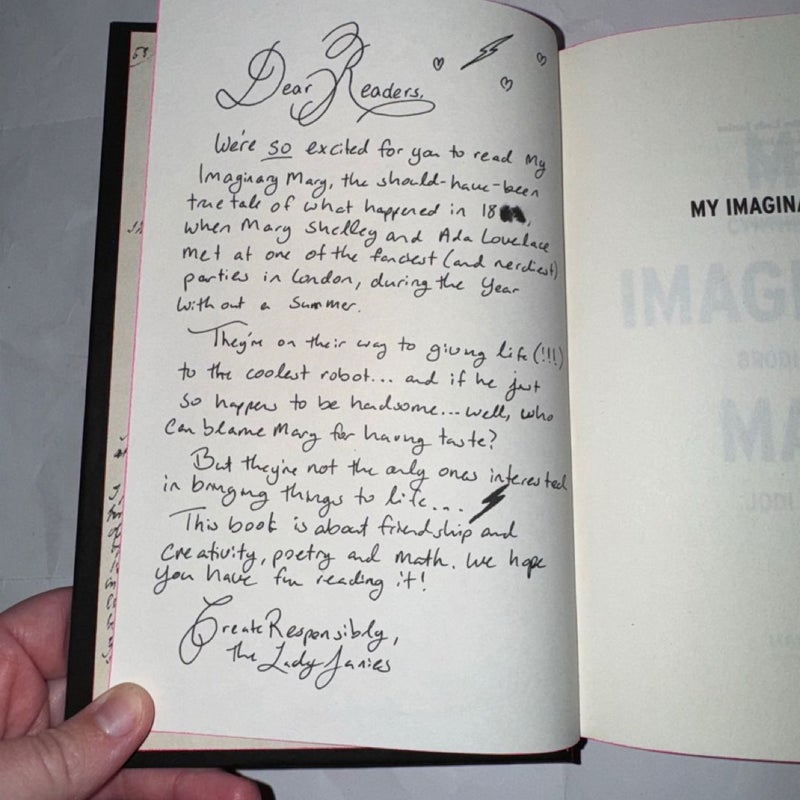 Dear Readers,
We're so excited for you to read My
Imaginary Mary, the should-have-been
true tale of what happened in 18
when Mary Shelley and Ada Lovelace
met at one of the fanciest (and nerdiest)
parties in London, during the Year
without a Summer.
They're on their way to giving life (!!!)
to the coolest robot... and if he just
so happens to be handsome... well, who
can blame Mary for having taste?
But they're not the only ones interested
in bringing things to life...
This book is about friendship and
creativity, poetry and math. We hope
you have fun reading it!
Create Responsibly,
the Lady Janies
MY IMAGINA
IMAGI
MA